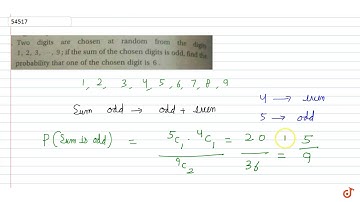 54517
Two digits are chosen at random from the digits
1, 2, 3, ···, 9; if the sum of the chosen digits is odd, find the
probability that one of the chosen digit is 6.
1, 2, 3, 4, 5, 6, 7, 8, 9
Sum odd → odd + even
4 → even
5 → odd
P(Sum is odd) = ⁵C₁·⁴C₁ / ⁹C₂ = 20 / 36 = 5 / 9